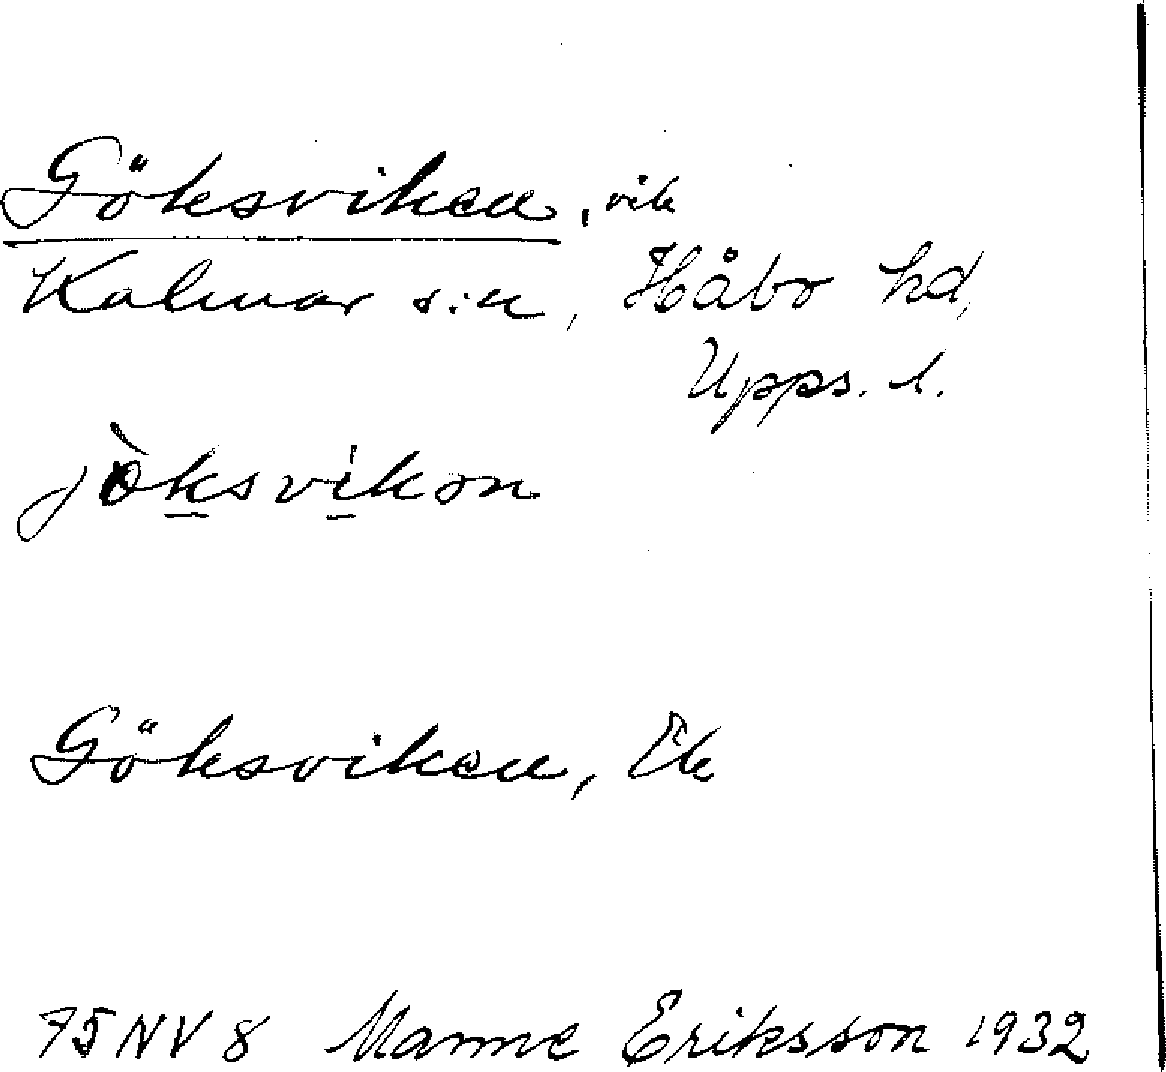 Göksviken, vik
Kalmar s:n, Håbo hd,
Upps. l.
jò̀ksvikon
Göksviken, Ek
75 NV 8 Manne Eriksson 1932